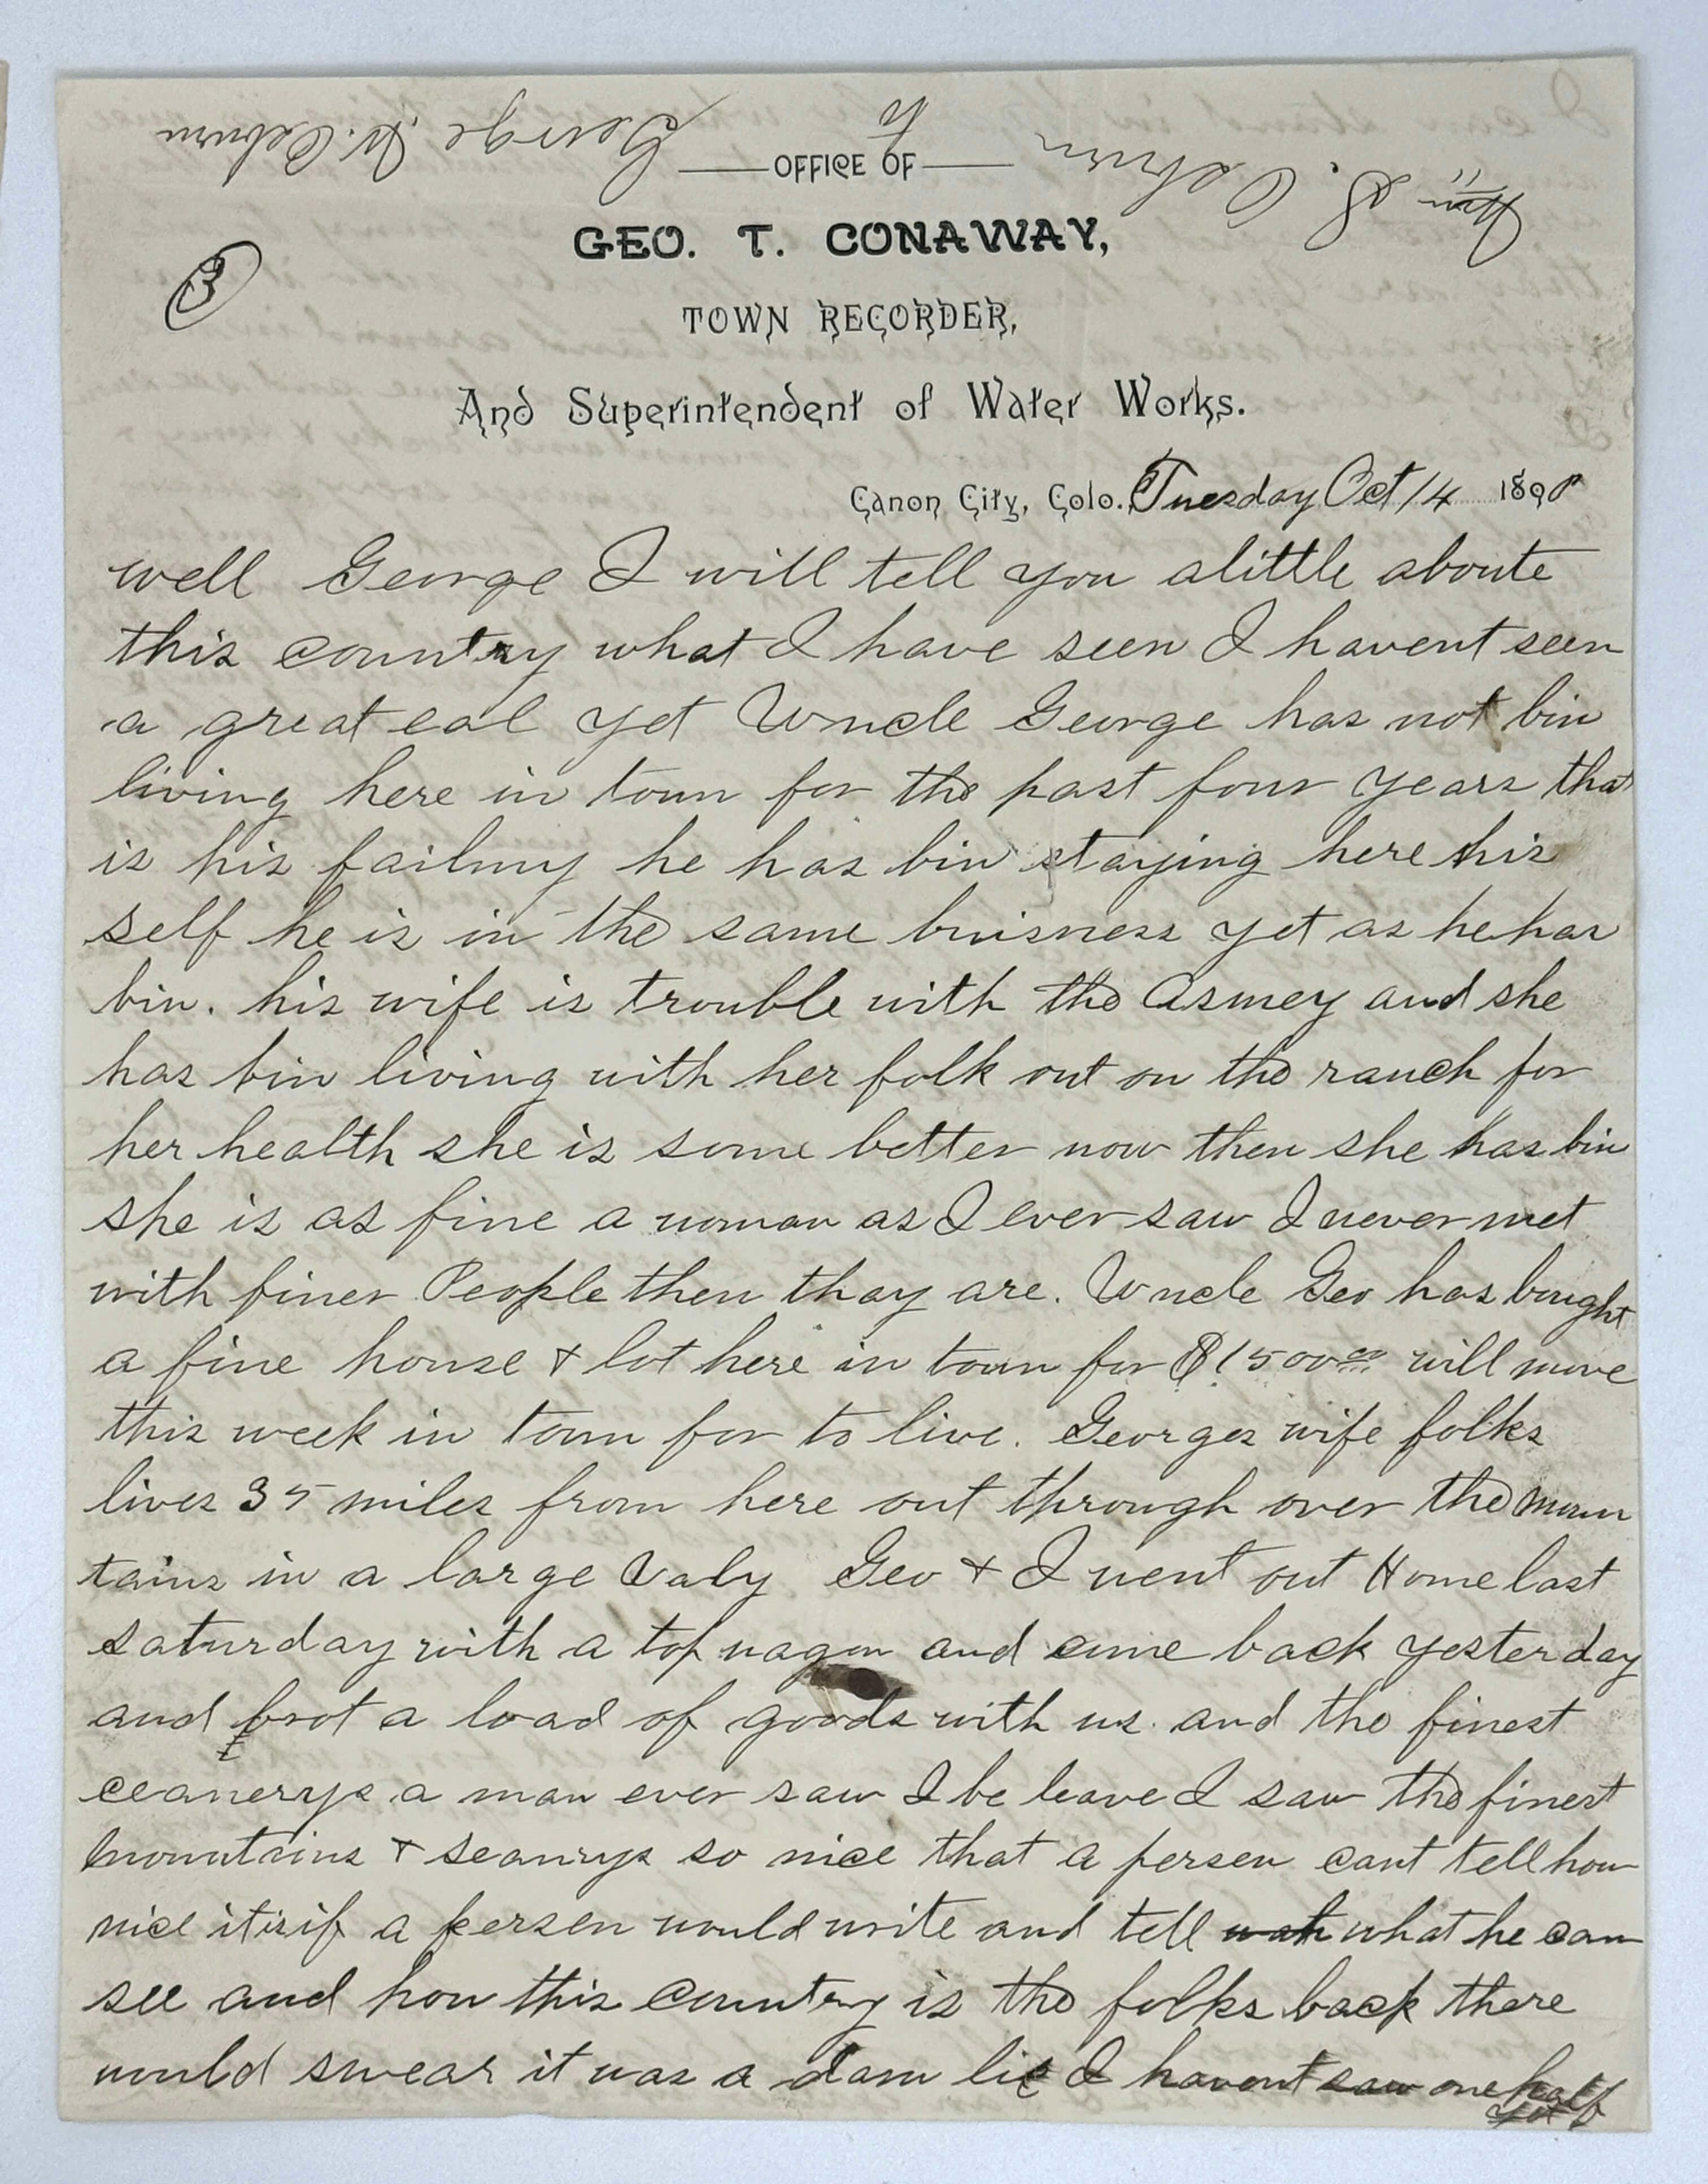 Wm. S. Coburn to George W. Coburn
OFFICE OF
GEO. T. CONAWAY,
TOWN RECORDER,
And Superintendent of Water Works.
3
Canon City, Colo. Tuesday Oct 14 1890
well George I will tell you alittle aboute
this country what I have seen I havent seen
a great eal yet Uncle George has not bin
living here in town for the past four years that
is his failmy he has bin staying here his
self he is in the same buisness yet as he has
bin. his wife is trouble with the Asmey and she
has bin living with her folk out on the ranch for
her health she is some better now then she has bin
she is as fine a woman as I ever saw I never met
with finer People then thay are. Uncle Geo has bought
a fine house & lot here in town for $1500.00 will move
this week in town for to live. Georges wife folks
lives 35 miles from here out through over the moun
tains in a large Valy Geo & I went out Home last
saturday with a top wagon and came back yesterday
and brot a load of goods with us. and the finest
ceanerys a man ever saw I be leave I saw the finest
mountains & seanrys so nice that a persen cant tell how
nice itisif a persen would write and tell wah what he can
see and how this country is the folks back there
would swear it was a dam lie I havent saw one half
yet